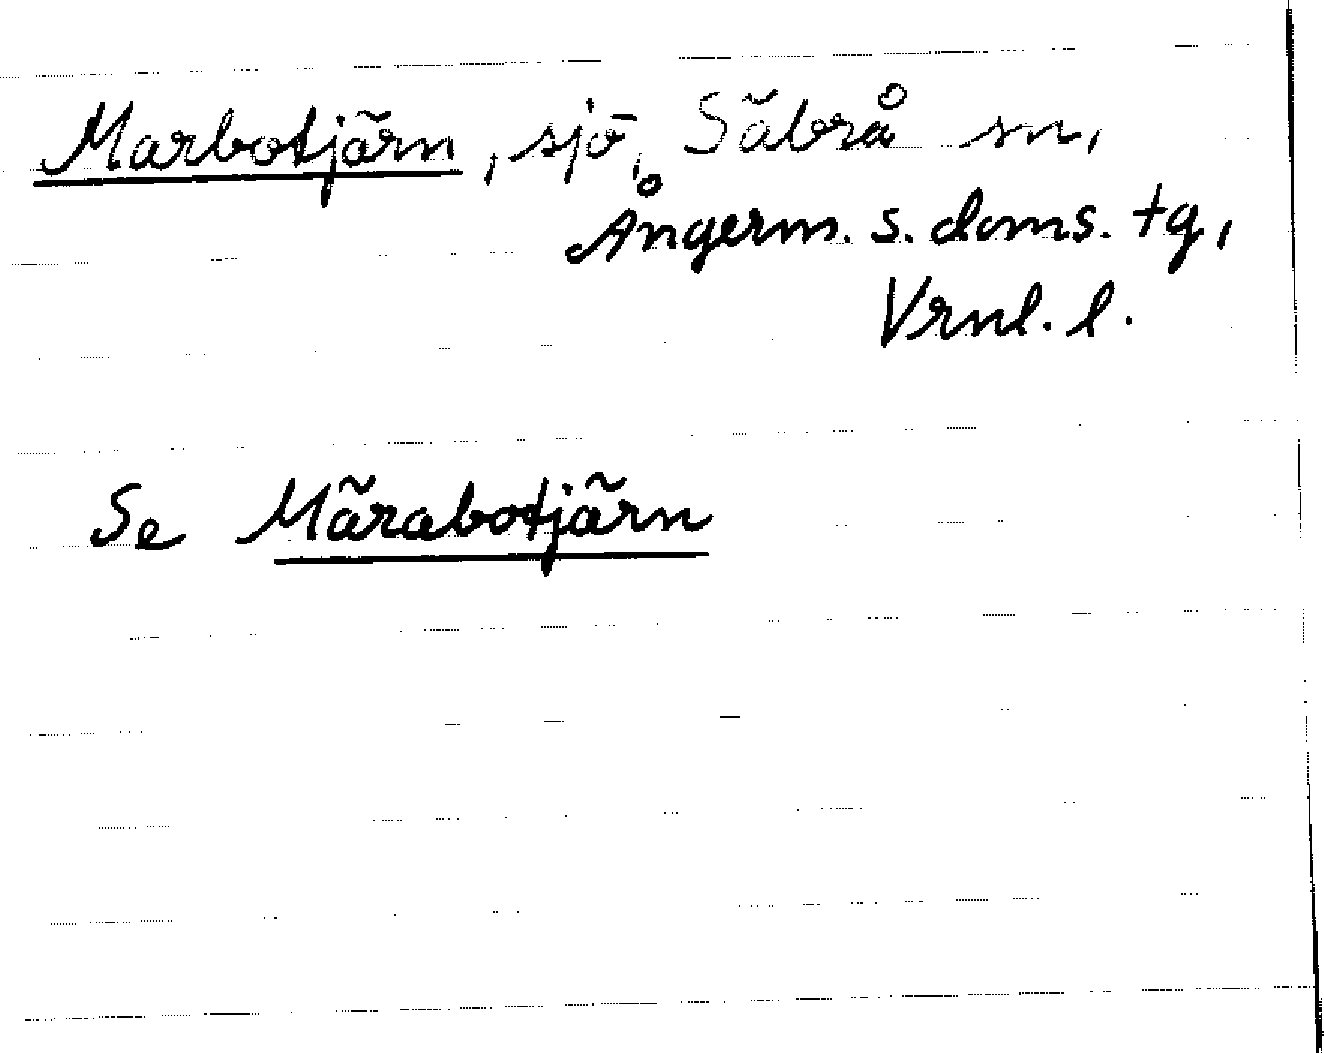 Marbotjärn, sjö, Säbrå sn,
Ångerm. s. doms. tg,
Vrnl. l.
Se Märabotjärn